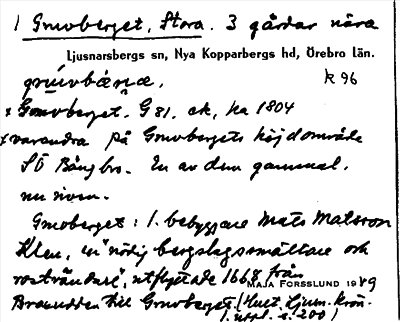 1 Gruvberget, Stora. 3 gårdar nära
Ljusnarsbergs sn, Nya Kopparbergs hd, Örebro län.
k 96
x Gruvberget. G 81. ek, ka 1804
x varandra på Gruvbergets höjdområde
SÖ Bångbro. En av dem gammal,
nu riven.
Gruvberget: 1. bebyggare Mats Matsson
Klen, en "nödig bergslagssmältare och
rostvändare", utflyttade 1668 från
MAJA FORSSLUND 1989
till Gruvberget. (Hult, Ljusn. krön.
1. uppl. s. 200)